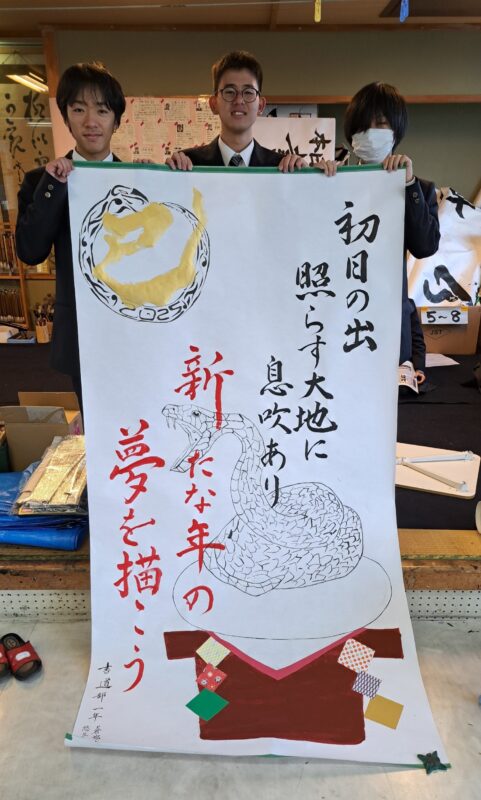 初日の出
照らす大地に
息吹あり
新たな年の
夢を描こう
書道部一年
巳
2025
5~8